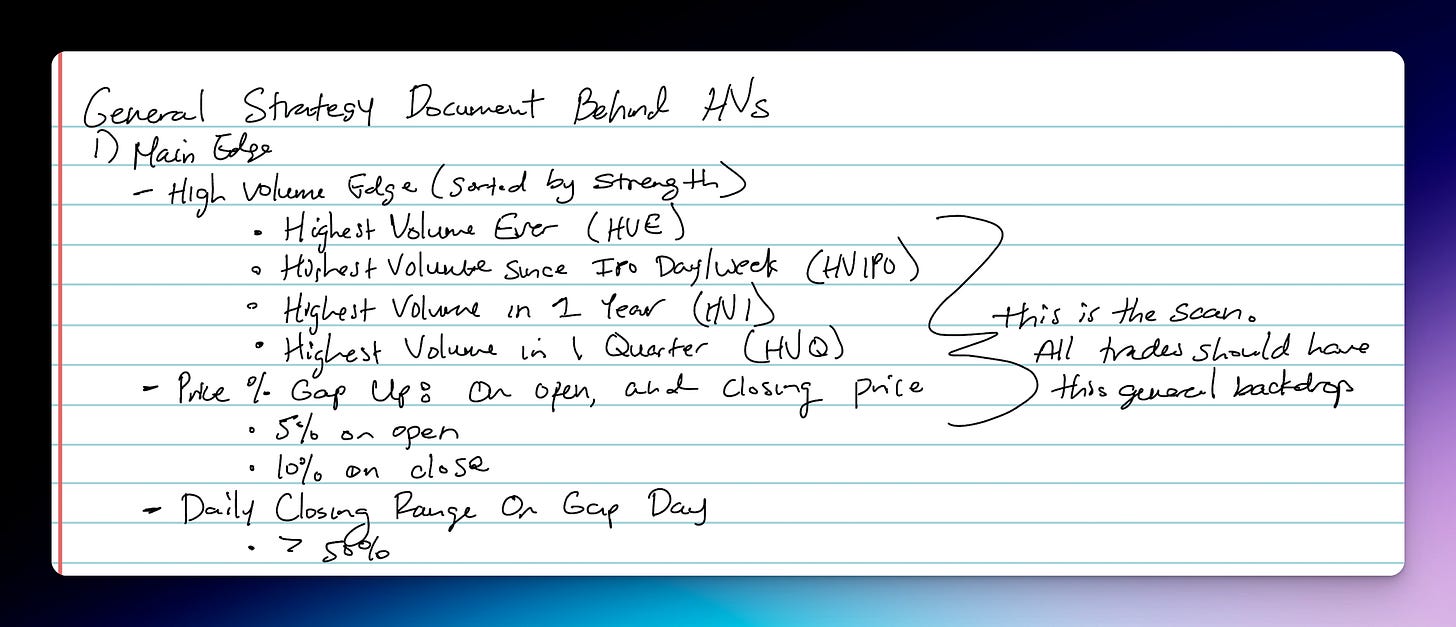 General Strategy Document Behind HVs
1) Main Edge
- High Volume Edge (sorted by strength)
• Highest Volume Ever (HVE)
• Highest Volume since IPO Day/week (HVIPO)
• Highest Volume in 1 Year (HV1)
• Highest Volume in 1 Quarter (HVQ)
this is the scan.
All trades should have
this general backdrop
- Price % Gap Up: On open, and closing price
• 5% on open
• 10% on close
- Daily Closing Range On Gap Day
• > 50%